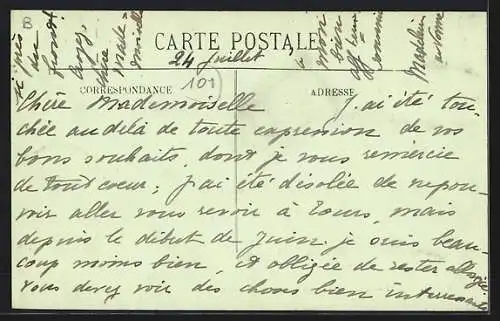 B
CARTE POSTALE
24 juillet
101
CORRESPONDANCE
ADRESSE
Chère Mademoiselle J'ai été tou-
chée au delà de toute expression de vos
bons souhaits, dont je vous remercie
de tout coeur; j'ai été désolée de ne pou-
voir aller vous revoir à Tours, mais
depuis le début de Juin je suis beau-
coup moins bien, et obligée de rester allongée
vous devez voir des choses bien interressantes
Chère
Made-
moiselle
à
mon
bien
Madeleine